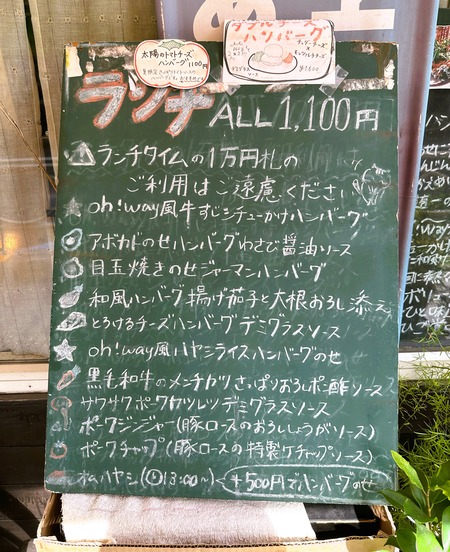 太陽のトマトチーズ
ハンバーグ 1100円
ダブルチーズ
ハンバーグ
チェダーチーズ
モッツァレラチーズ
デミグラス
ソース
¥1600
ランチ ALL 1,100円
ランチタイムの1万円札の
ご利用はご遠慮ください
oh!way風牛すじシチューかけハンバーグ
アボカドのせハンバーグわさび醤油ソース
目玉焼きのせジャーマンハンバーグ
和風ハンバーグ揚げ茄子と大根おろし添え
とろけるチーズハンバーグデミグラスソース
oh!way風ハヤシライスハンバーグのせ
黒毛和牛のメンチカツさっぱりおろしポン酢ソース
サクサクポークカツレツデミグラスソース
ポークジンジャー(豚ロースのおろししょうがソース)
ポークチャップ(豚ロースの特製ケチャップソース)
オムハヤシ(13:00〜) +500円でハンバーグのせ